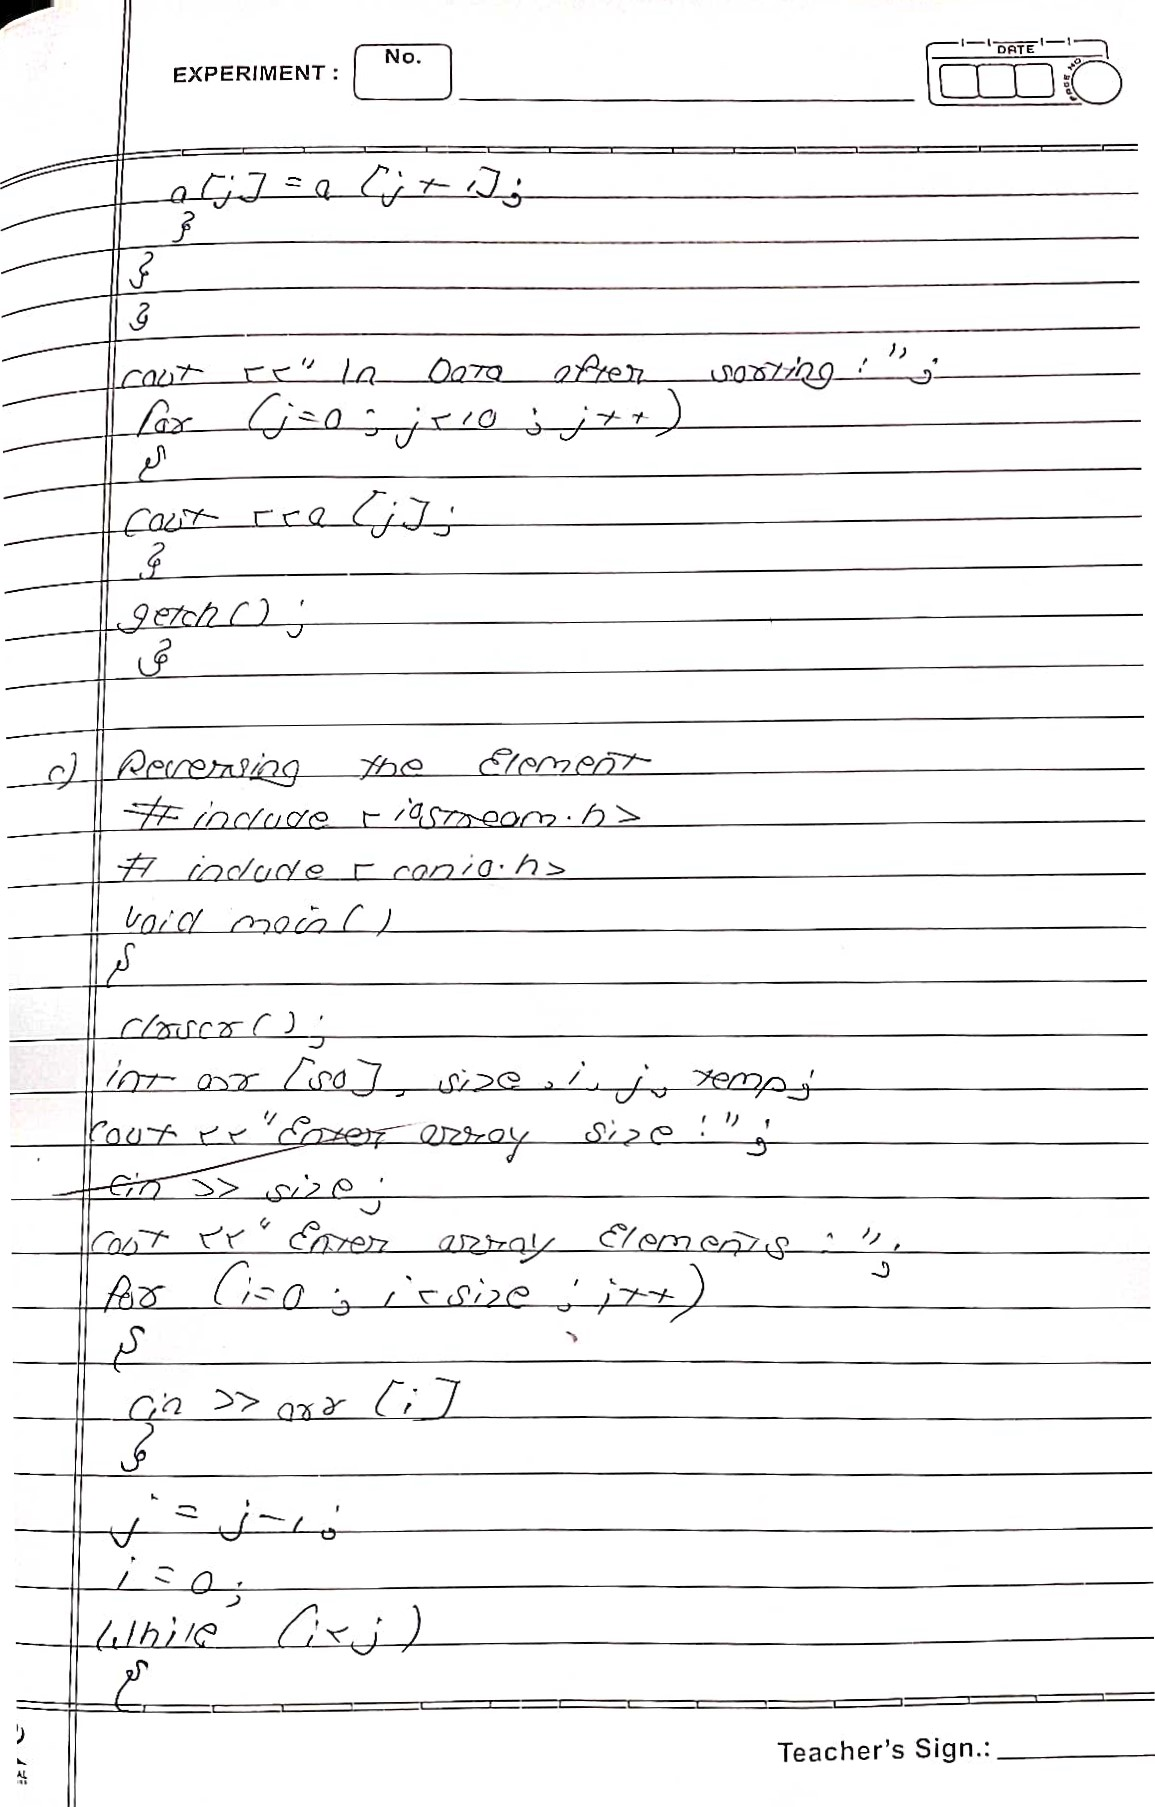 EXPERIMENT : No.
DATE
PAGE NO
a[j] = a [j + 1];
}
}
}
cout <<" \n Data after sorting : " ;
for (j=0 ; j<10 ; j++)
{
cout <<a [j];
}
getch() ;
}
c) Reversing the Element
# include <iostream.h>
# include <conio.h>
void main()
{
clrscr();
int arr [50], size, i, j, temp;
cout <<"Enter array size :" ;
cin >> size;
cout <<" Enter array Elements : ";
for (i=0 ; i<size ; i++)
{
cin >> arr [i]
}
j = j-1;
i = 0;
while (i<j)
{
Teacher's Sign.: